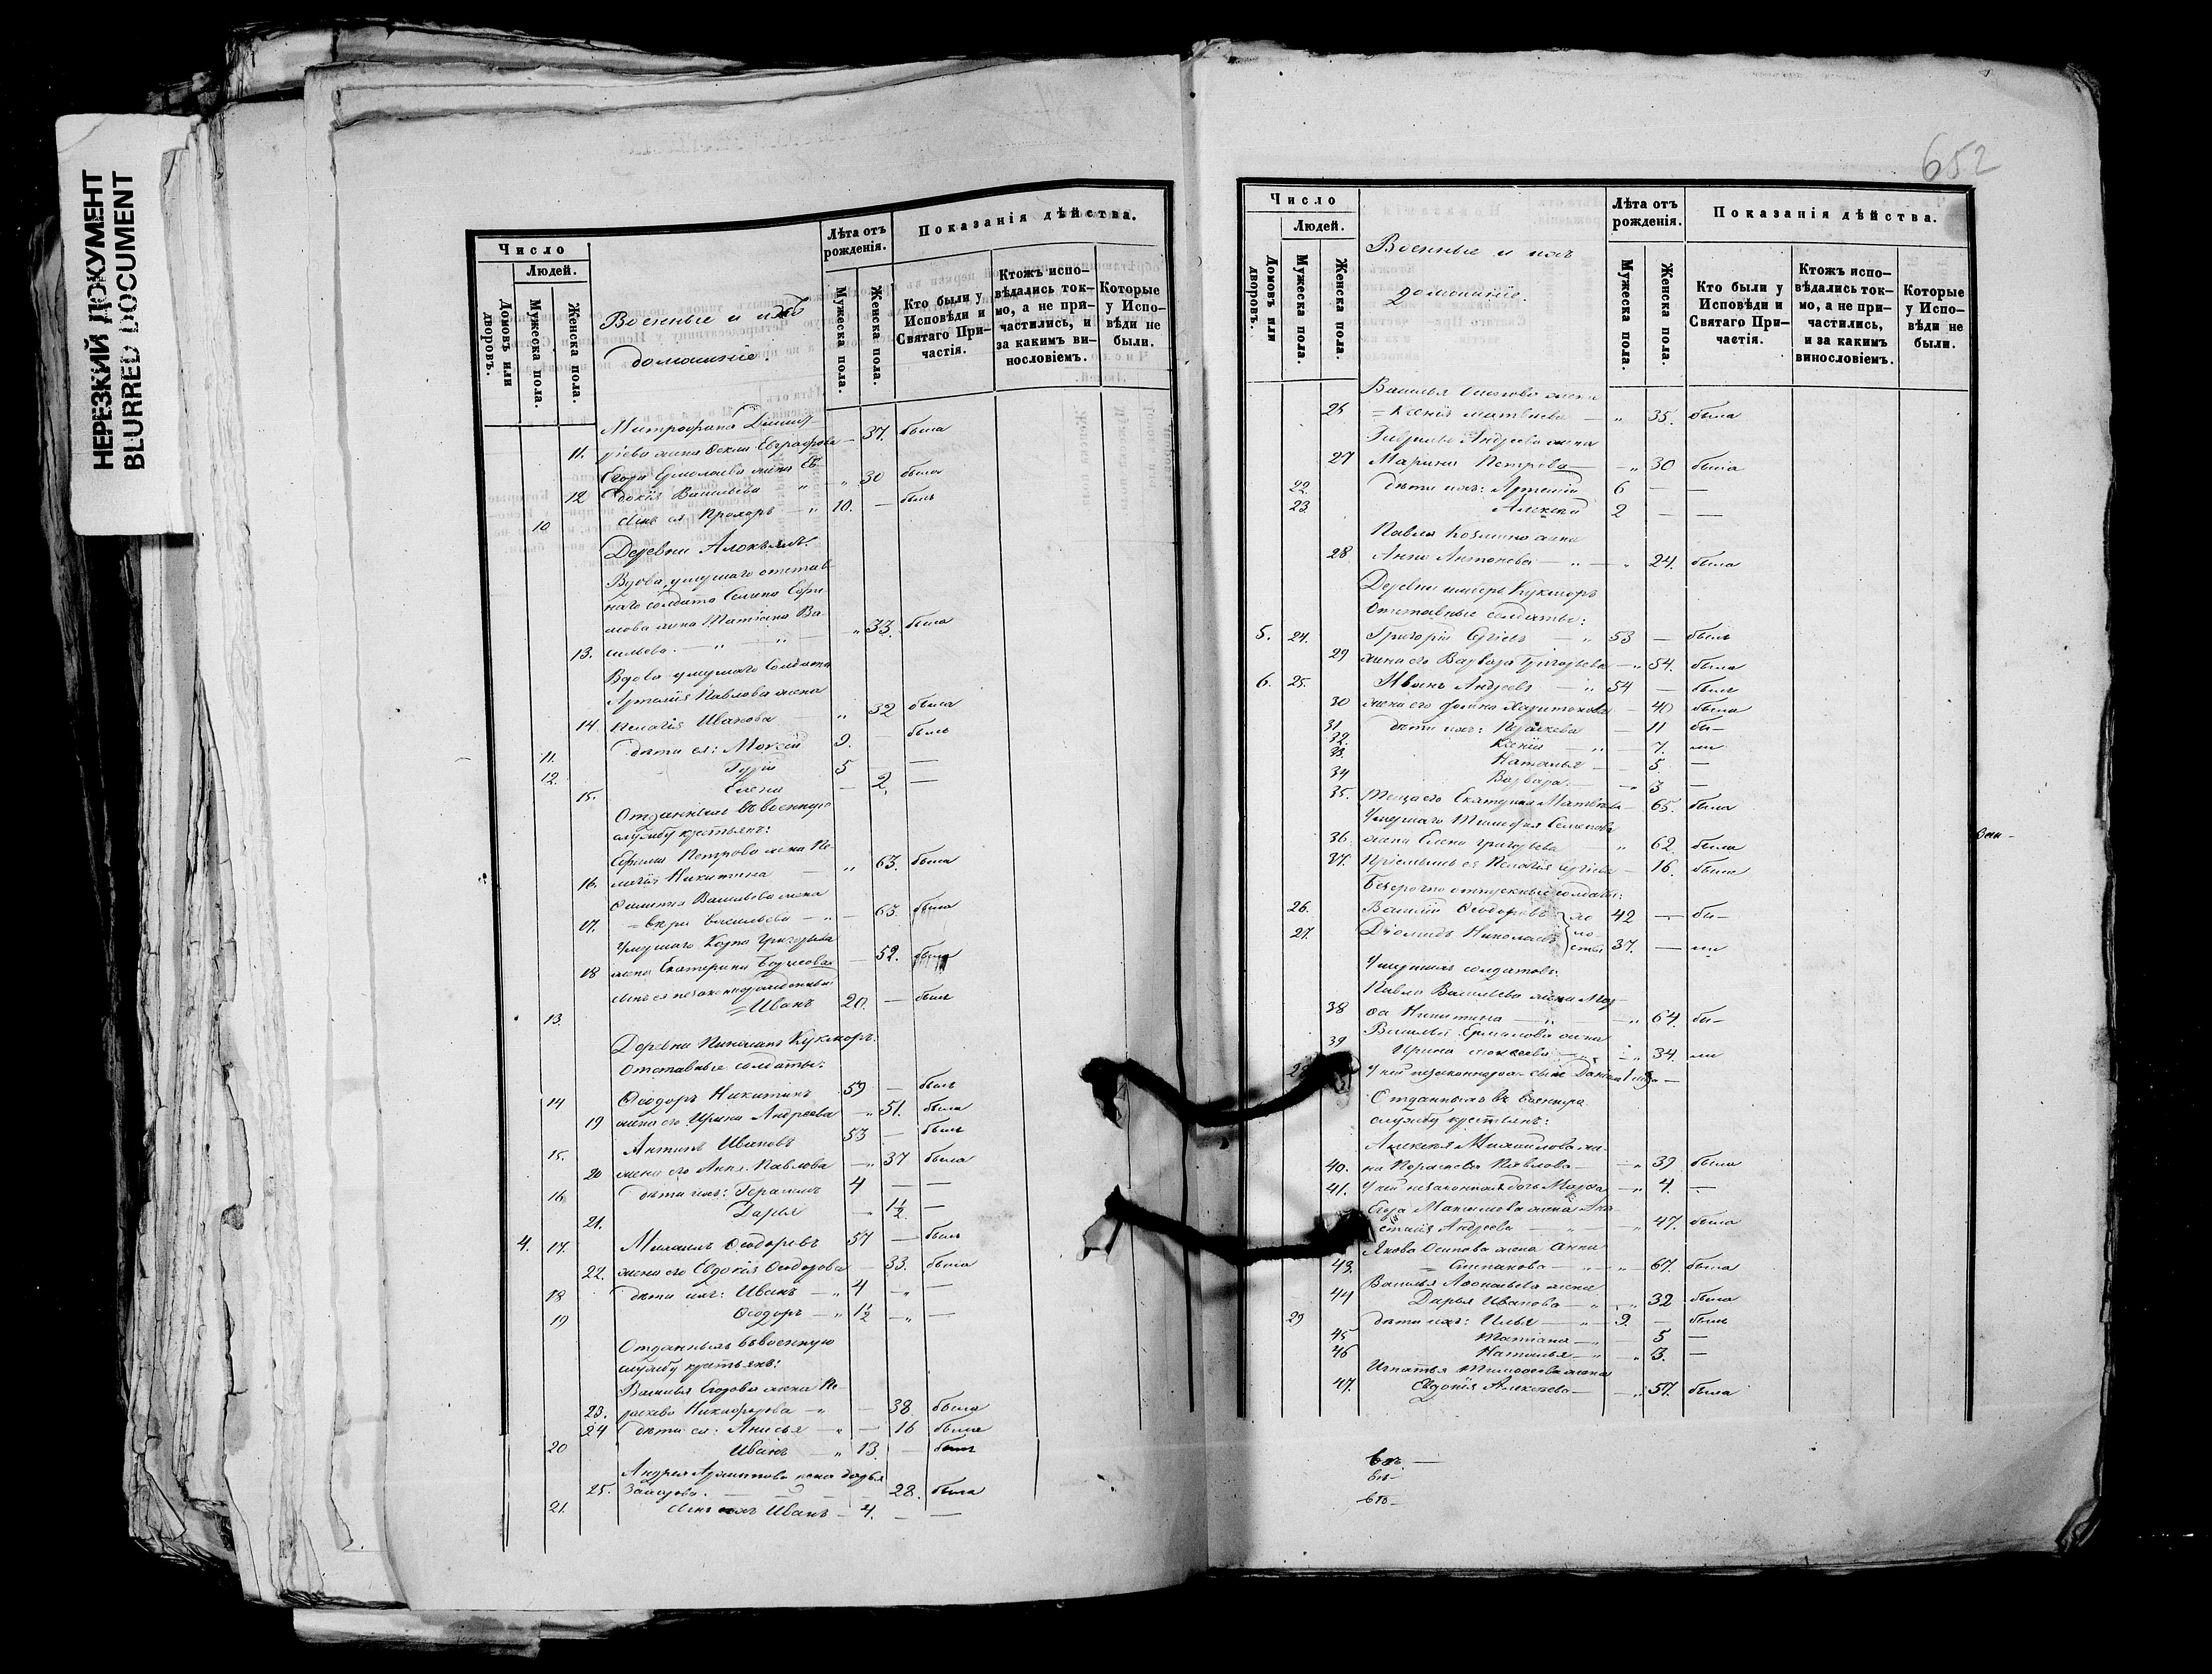 НЕРЕЗКИЙ ДОКУМЕНТ
BLURRED DOCUMENT
Число
Людей.
Домовъ или дворовъ.
Мужеска пола.
Женска пола.
Военные и ихъ
домашніе.
Лѣта отъ рожденія.
Мужеска пола.
Женска пола.
Показанія дѣйства.
Кто были у Исповѣди и Святаго Причастія.
Ктожъ исповѣдались токмо, а не причастились, и за какимъ винословіемъ.
Которые у Исповѣди не были.
Митрофана Димит-
11. ріева жена Фекла Евграфова — 37. была
Егора Ермолаева жена Ев-
12 докія Васильева " — " 30 была
10 Сынъ ея Прохоръ — " 10. — былъ
Деревни
Вдова умершаго отстав-
наго солдата Семена Ефи-
мова жена Татіана Ва-
13. сильева. — " — " 33. была
Вдова умершаго солдата
Павлова жена
14. Пелагія Иванова — " 32 была
11. дѣти ея: Моѵсей 9. — былъ
12. Гурій 5 —
15. Елена — 2. —
Отданныхъ въ военную
службу крестьянъ:
Ефима Петрова жена Пе-
16. лагія Никитина — " 63. была
Филиппа Васильева жена
17. Васильева — " — 63. была
Умершаго Карпа Григорьева
18 жена Екатерина Борисова — 52. была
сынъ ея незаконнорожденный
13. = Иванъ 20. — былъ
Деревни Кукморъ.
Отставные солдаты:
14 Ѳеодоръ Никитинъ 59 — былъ
19 жена его Ирина Андреева — " 51. была
15. Антипъ Ивановъ 53 — былъ
20 жена его Анна Павлова — " 37 была
16. дѣти ихъ: Герасимъ 4 — —
21. Дарья — " 1½. —
4. 17. Михаилъ Ѳеодоровъ 57 — былъ
22. жена его Евдокія Ѳеодорова — 33. была
18 дѣти ихъ: Иванъ — " 4 — " —
19 Ѳеодоръ — " 1½ — " —
Отданныхъ въ военную
службу крестьянъ:
Василья Егорова жена Па-
23. раскева Никифорова — " — 38 была
24 дѣти ея: Анисья — " — 16 была
20 Иванъ — " 13. — былъ
Андрея жена Дарья
25. Захарова. — 28. была
21. сынъ ихъ Иванъ — 4. — —
652
Число
Людей.
Домовъ или дворовъ.
Мужеска пола.
Женска пола.
Военные и ихъ
домашніе.
Лѣта отъ рожденія.
Мужеска пола.
Женска пола.
Показанія дѣйства.
Кто были у Исповѣди и Святаго Причастія.
Ктожъ исповѣдались токмо, а не причастились, и за какимъ винословіемъ.
Которые у Исповѣди не были.
Василья Осипова жена
26 = Ксенія Матвѣева — " 35. была
Гавріила Андреева жена
27 Марина Петрова — — " 30 была
22. дѣти ихъ: Артемій 6 — —
23. Алексѣй 2 — —
Павла Козмина жена
28. Анна Антонова — " — " 24. была
Деревни Кукморъ
Отставные солдаты:
5. 24. Григорій Сергіевъ — " 53 — былъ
29 жена его Варвара Григорьева — " 54. была
6. 25. Иванъ Андреевъ — " 54 — былъ
30 жена его Домна Харитонова — 40 была
31. дѣти ихъ: Параскева — 11 бы—
32. Ксенія — " — 7. ли
33. Наталья — 5. —
34 Варвара — " 3 —
35. Теща его Екатерина Матвѣева — 65. была
Умершаго Тимоѳея Семенова
36. жена Елена Григорьева " 62. была
37. Пріемышъ ея Пелагія Сергіева — 16. была
Безсрочно отпускные солдаты:
26. Василій Ѳеодоровъ 42 — бы—
27. Діомидъ Николаевъ 37. — ли
хо
ло-
сты
Умершихъ солдатовъ:
Павла Васильева жена Мар-
38 ѳа Никитина — " — " 64. бы—
Василья Ермилова жена
39 Ирина Моисеева — " — " 34. ли
28 У ней незаконнорож. сынъ —
Отданныхъ въ военную
службу крестьянъ:
Алексѣя Михайлова же-
40. на Параскева Павлова — — " 39 была
41. У ней незаконная дочь Марѳа — " 4. —
Максимова жена Ана-
стасія Андреева — " — " 47. была
Якова Осипова жена Анна
43. = Степанова — " — " 67. была
Василья Аѳонасьева жена
44 Дарья Иванова — " — " 32 была
29 дѣти ихъ: Илья — " — 9. — былъ
45 Татіана — " — 5 —
46 Наталья — " " 3. —
Игнатья Тимоѳеева жена
47. Евдокія Алексѣева — — " 57. была